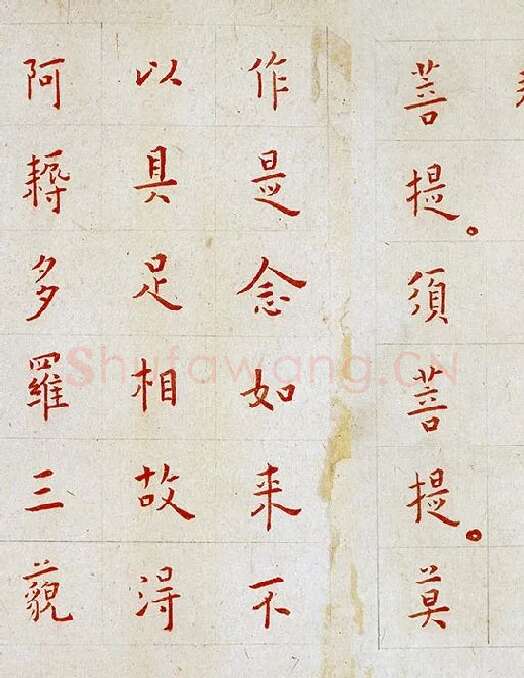 菩提。須菩提。莫
作是念如来不
以具足相故得
阿耨多羅三藐
Shufawang.CN